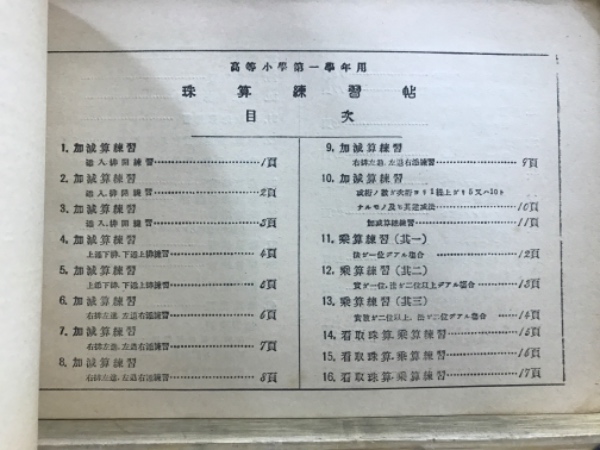 高等小學第一學年用
珠算練習帖
目次
1. 加減算練習
運入、排開練習 1頁
2. 加減算練習
運入、排開練習 2頁
3. 加減算練習
運入、排開練習 3頁
4. 加減算練習
上添下排、下添上排練習 4頁
5. 加減算練習
上添下排、下添上排練習 5頁
6. 加減算練習
右排左進、左退右添練習 6頁
7. 加減算練習
右排左進、左退右添練習 7頁
8. 加減算練習
右排左進、左退右添練習 8頁
9. 加減算練習
右排左進、左退右添練習 9頁
10. 加減算練習
減桁ノ數ガ次桁ヨリ1桁上ガリ5又ハ10ト
ナルモノ及ビ其逆減法 10頁
加減算練習 11頁
11. 乘算練習 (其一)
法ガ一位デアル場合 12頁
12. 乘算練習 (其二)
實ガ一位、法ガ二位以上デアル場合 13頁
13. 乘算練習 (其三)
實數ガ二位以上、法ガ二位デアル場合 14頁
14. 看取珠算、乘算練習 15頁
15. 看取珠算、乘算練習 16頁
16. 看取珠算、乘算練習 17頁